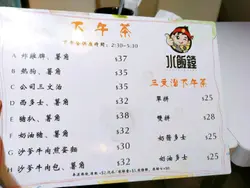 下午茶
下午茶供應時間: 2:30-5:30
A 炸雞髀、薯角 $37
B 熱狗、薯角 $35
C 公司三文治 $35
D 西多士、薯角 $32
E 豬扒、薯角 $38
F 奶油豬、薯角 $32
G 沙爹牛肉煎蛋麵 $30
H 沙爹牛肉包、薯角 $32
水飯鐘
三文治下午茶
單拼 $25
雙拼 $28
奶醬多士 $25
奶油多士 $25